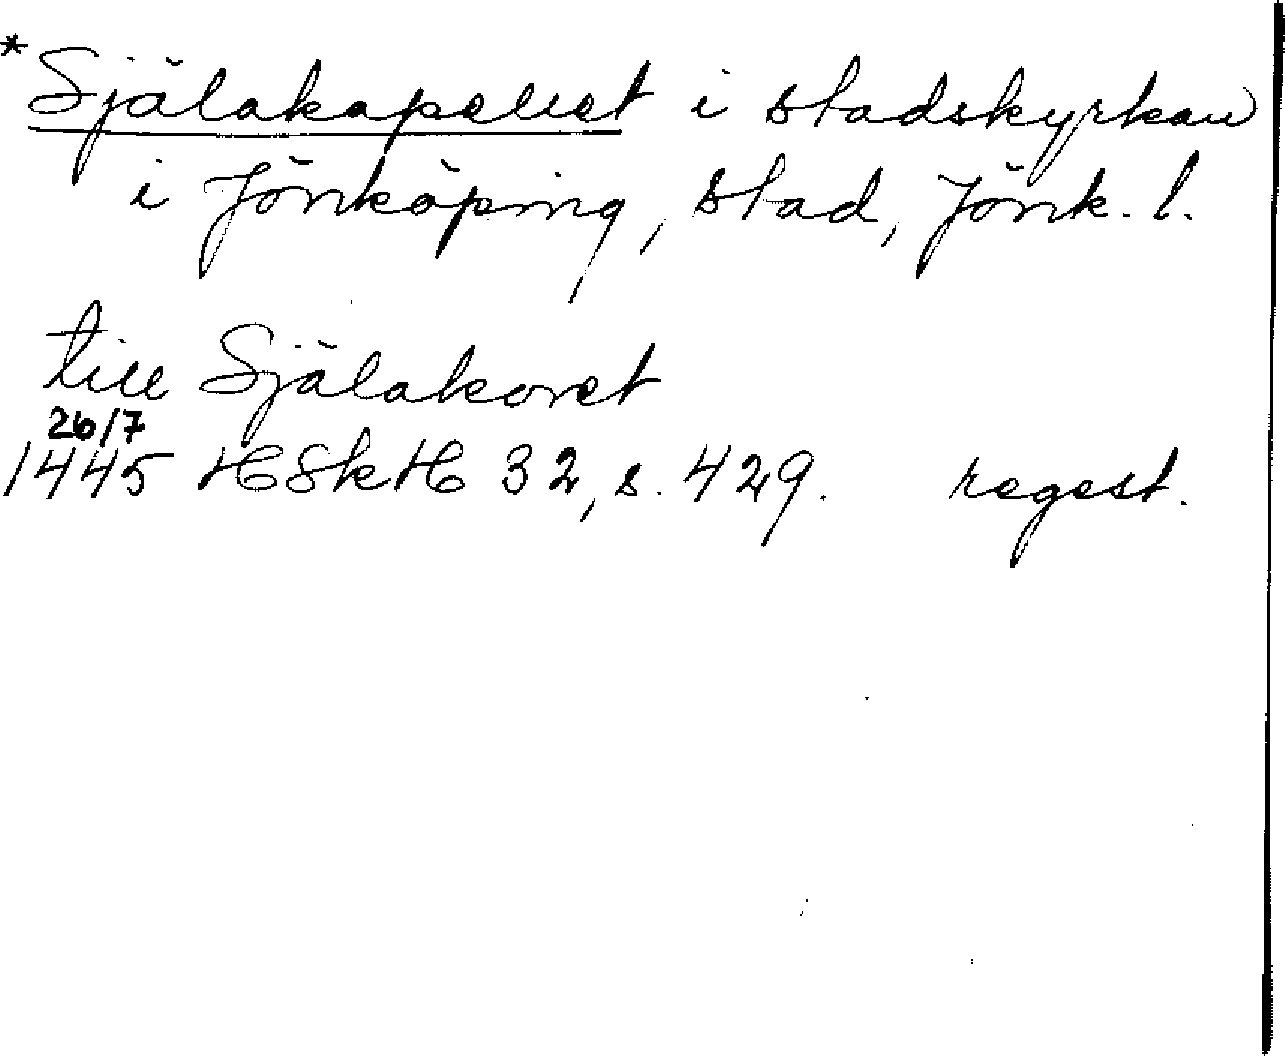 *Själakapellet i stadskyrkan
i Jönköping, stad, Jönk. l.
till Själakoret
26/7
1445 HSkH 32, s. 429. regest.